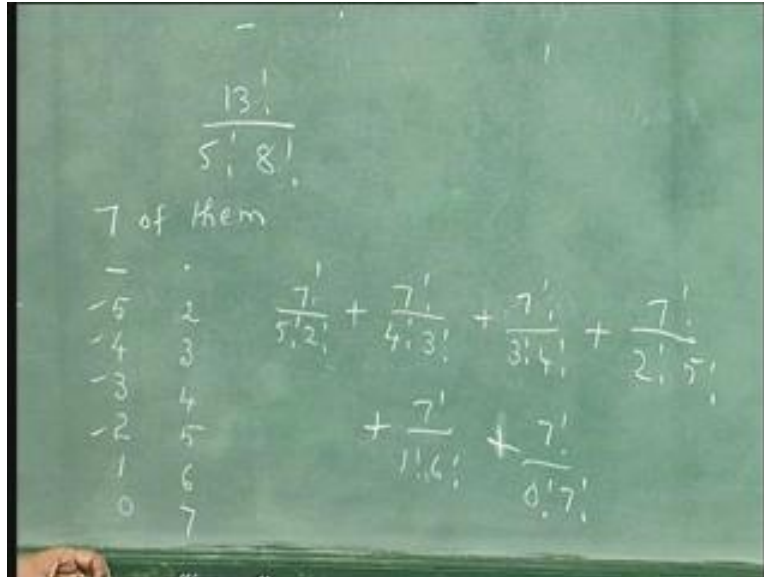 13!
5! 8!
7 of them
— .
-5 2
-4 3
-3 4
-2 5
1 6
0 7
7!/5!2! + 7!/4!3! + 7!/3!4! + 7!/2!5!
+ 7!/1!6! + 7!/0!7!